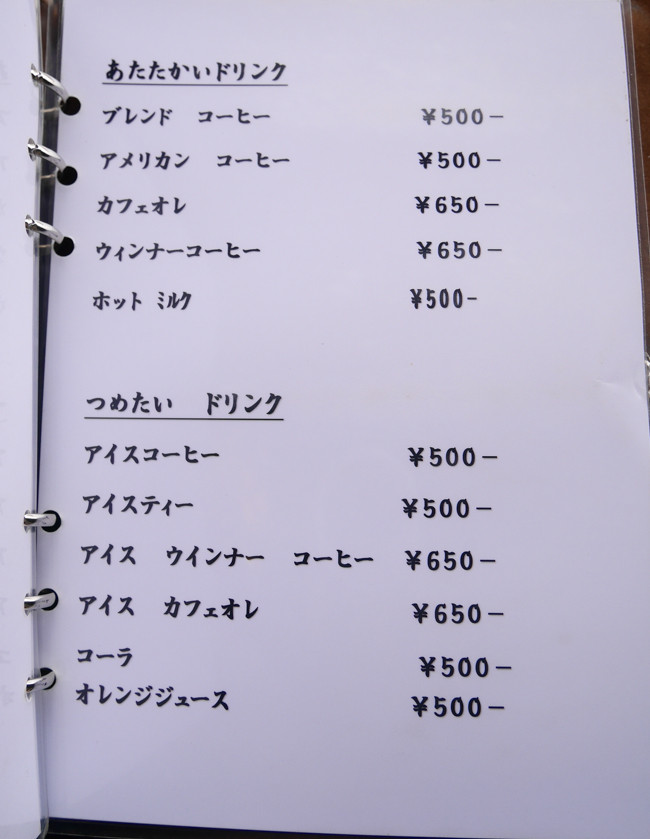 あたたかいドリンク
ブレンド　コーヒー　¥500−
アメリカン　コーヒー　¥500−
カフェオレ　¥650−
ウィンナーコーヒー　¥650−
ホット ミルク　¥500-
つめたい　ドリンク
アイスコーヒー　¥500−
アイスティー　¥500−
アイス　ウインナー　コーヒー　¥650−
アイス　カフェオレ　¥650−
コーラ　¥500−
オレンジジュース　¥500−